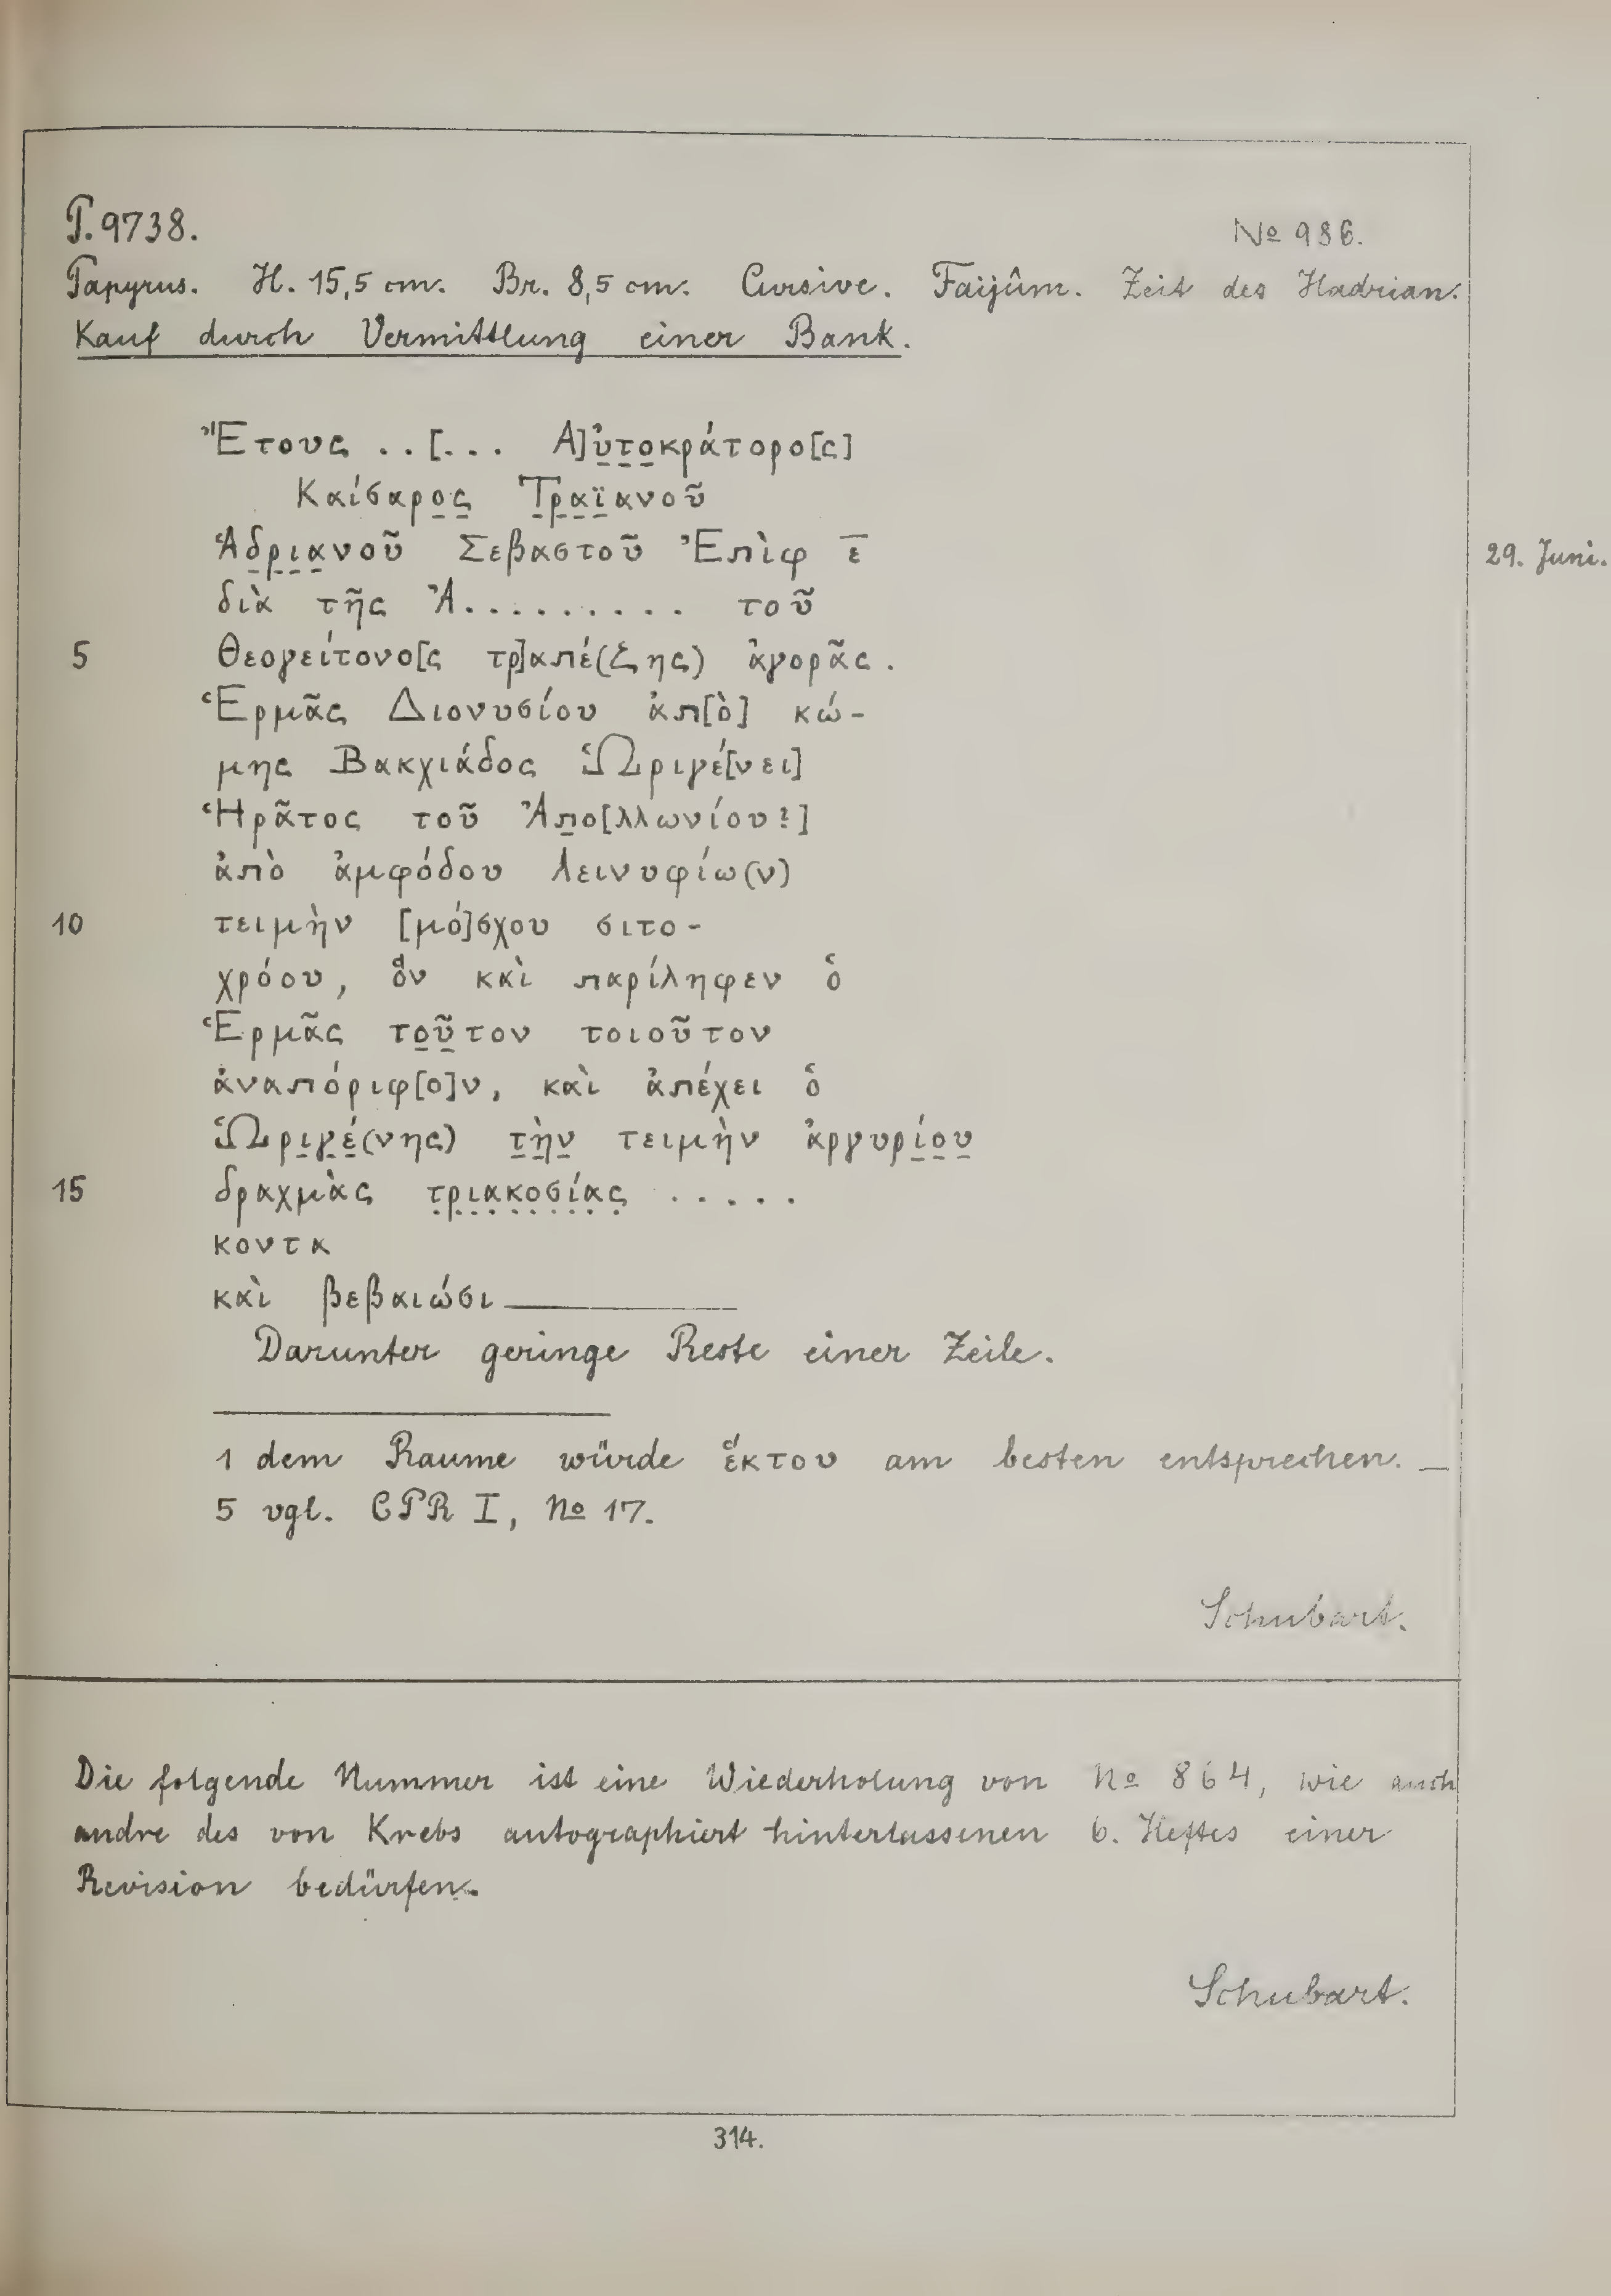 P. 9738.
No 986.
Papyrus. H. 15,5 cm. Br. 8,5 cm. Cursive. Faijûm. Zeit des Hadrian.
Kauf durch Vermittlung einer Bank.
Ἔτους . . [. . . Α]ὐ̣τ̣ο̣κράτορο[ς]
Καίσαρο̣ς̣ Τ̣ρ̣α̣ϊ̣ανοῦ
Ἁδ̣ρ̣ι̣α̣νοῦ Σεβαστοῦ Ἐπὶφ ε̅
29. Juni.
διὰ τῆς Ἀ. . . . . . . . . . τοῦ
5 Θεογείτονο[ς τρ]απέ(ζης) ἀγορᾶς.
Ἑρμᾶς Διονυσίου ἀπ[ὸ] κώ-
μης Βακχιάδος Ὡριγέ[νει]
Ἡρᾶτος τοῦ Ἀπ̣ο[λλωνίου?]
ἀπὸ ἀμφόδου Λεινυφίω(ν)
10 τειμὴν [μό]σχου σιτο-
χρόου, ὃν καὶ παρίληφεν ὁ
Ἑρμᾶς το̣ῦ̣τον τοιοῦτον
ἀναπόριφ[ο]ν, καὶ ἀπέχει ὁ
Ὡρι̣γ̣έ̣(νης) τ̣ὴ̣ν̣ τειμὴν ἀργυρί̣ο̣υ̣
15 δραχμὰς τ̣ρ̣ι̣α̣κ̣ο̣σ̣ί̣α̣ς̣ . . . . .
κοντα
καὶ βεβαιώσι______
Darunter geringe Reste einer Zeile.
1 dem Raume würde ἕκτου am besten entsprechen. —
5 vgl. CPR I, No 17.
Schubart.
Die folgende Nummer ist eine Wiederholung von No 864, wie auch
andre des von Krebs autographiert hinterlassenen 6. Heftes einer
Revision bedürfen.
Schubart.
314.